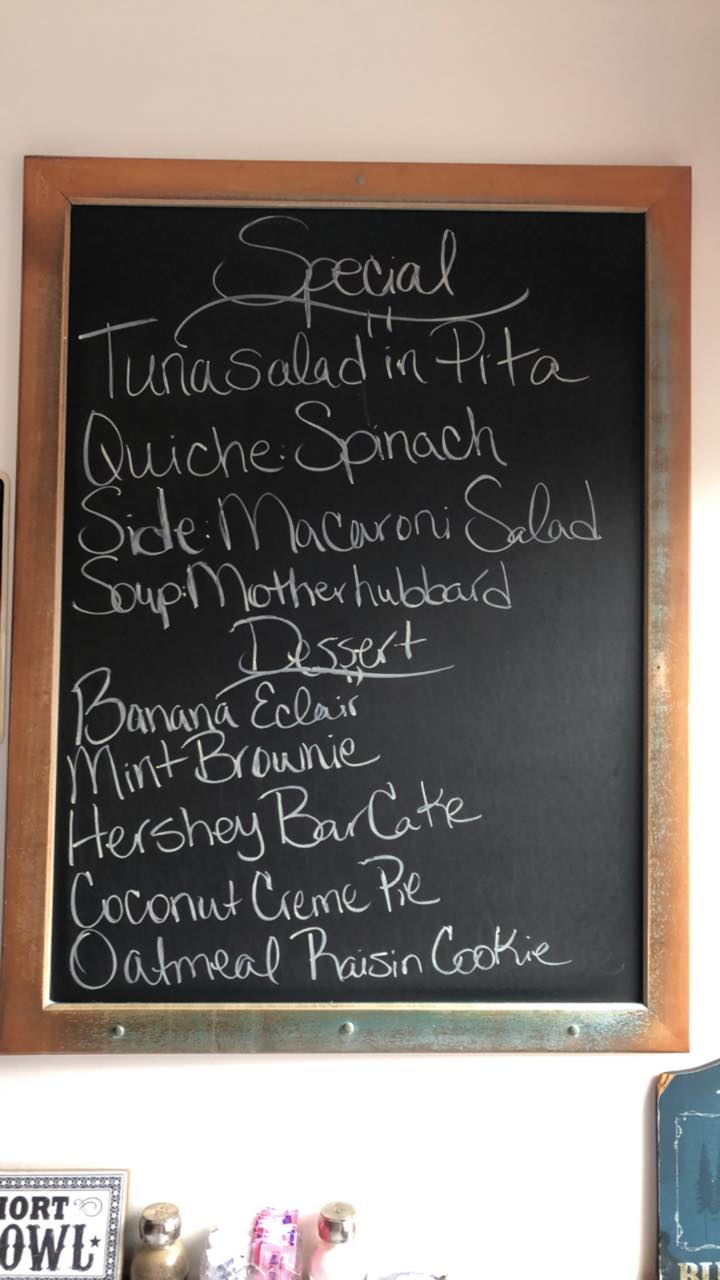 Special
Tuna salad in Pita
Quiche: Spinach
Side: Macaroni Salad
Soup: Motherhubbard
Dessert
Banana Eclair
Mint Brownie
Hershey Bar Cake
Coconut Creme Pie
Oatmeal Raisin Cookie
HORT
OWL